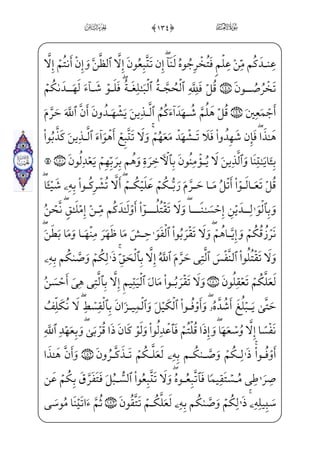 سُورَةُ الأَنْعَامِ ﴿١٣٤﴾ الجُزْءُ الثَّامِنُ
عِندَكُم مِّنْ عِلْمٍ فَتُخْرِجُوهُ لَنَآ ۖ إِن تَتَّبِعُونَ إِلَّا ٱلظَّنَّ وَإِنْ أَنتُمْ إِلَّا
تَخْرُصُونَ ١٤٨ قُلْ فَلِلَّهِ ٱلْحُجَّةُ ٱلْبَٰلِغَةُ ۖ فَلَوْ شَآءَ لَهَدَىٰكُمْ
أَجْمَعِينَ ١٤٩ قُلْ هَلُمَّ شُهَدَآءَكُمُ ٱلَّذِينَ يَشْهَدُونَ أَنَّ ٱللَّهَ حَرَّمَ
هَٰذَا ۖ فَإِن شَهِدُوا۟ فَلَا تَشْهَدْ مَعَهُمْ ۚ وَلَا تَتَّبِعْ أَهْوَآءَ ٱلَّذِينَ كَذَّبُوا۟
بِـَٔايَٰتِنَا وَٱلَّذِينَ لَا يُؤْمِنُونَ بِٱلْـَٔاخِرَةِ وَهُم بِرَبِّهِمْ يَعْدِلُونَ ١٥٠ ۞
قُلْ تَعَالَوْا۟ أَتْلُ مَا حَرَّمَ رَبُّكُمْ عَلَيْكُمْ ۖ أَلَّا تُشْرِكُوا۟ بِهِۦ شَيْـًٔا ۖ
وَبِٱلْوَٰلِدَيْنِ إِحْسَٰنًا ۖ وَلَا تَقْتُلُوٓا۟ أَوْلَٰدَكُم مِّنْ إِمْلَٰقٍ ۖ نَّحْنُ
نَرْزُقُكُمْ وَإِيَّاهُمْ ۖ وَلَا تَقْرَبُوا۟ ٱلْفَوَٰحِشَ مَا ظَهَرَ مِنْهَا وَمَا بَطَنَ ۖ
وَلَا تَقْتُلُوا۟ ٱلنَّفْسَ ٱلَّتِى حَرَّمَ ٱللَّهُ إِلَّا بِٱلْحَقِّ ۚ ذَٰلِكُمْ وَصَّىٰكُم بِهِۦ
لَعَلَّكُمْ تَعْقِلُونَ ١٥١ وَلَا تَقْرَبُوا۟ مَالَ ٱلْيَتِيمِ إِلَّا بِٱلَّتِى هِىَ أَحْسَنُ
حَتَّىٰ يَبْلُغَ أَشُدَّهُۥ ۖ وَأَوْفُوا۟ ٱلْكَيْلَ وَٱلْمِيزَانَ بِٱلْقِسْطِ ۖ لَا نُكَلِّفُ
نَفْسًا إِلَّا وُسْعَهَا ۖ وَإِذَا قُلْتُمْ فَٱعْدِلُوا۟ وَلَوْ كَانَ ذَا قُرْبَىٰ ۖ وَبِعَهْدِ ٱللَّهِ
أَوْفُوا۟ ۚ ذَٰلِكُمْ وَصَّىٰكُم بِهِۦ لَعَلَّكُمْ تَذَكَّرُونَ ١٥٢ وَأَنَّ هَٰذَا
صِرَٰطِى مُسْتَقِيمًا فَٱتَّبِعُوهُ ۖ وَلَا تَتَّبِعُوا۟ ٱلسُّبُلَ فَتَفَرَّقَ بِكُمْ عَن
سَبِيلِهِۦ ۚ ذَٰلِكُمْ وَصَّىٰكُم بِهِۦ لَعَلَّكُمْ تَتَّقُونَ ١٥٣ ثُمَّ ءَاتَيْنَا مُوسَى